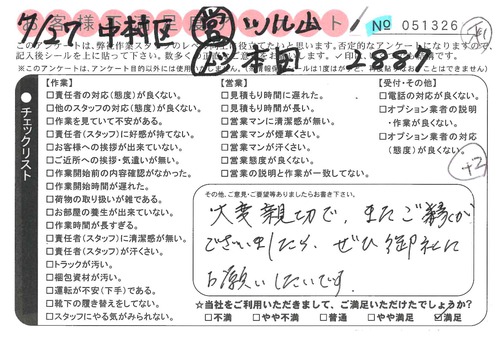 7/27 中村区 営 ツルヒ山
お客様 ト! № 051326
本田 2887
このアンケートは、弊社作業スタッフのレベル向上に役立てたいと思います。否定的なアンケートになりますので、
※このアンケートは、作業アンケート目的以外には使用いたしません。
チェックリスト
【作業】
□責任者の対応(態度)が良くない。
□他のスタッフの対応(態度)が良くない。
□作業を見ていて不安がある。
□責任者(スタッフ)に好感が持てない。
□お客様への挨拶が出来ていない。
□ご近所への挨拶・気遣いが無い。
□作業開始前の内容確認がなかった。
□作業開始時間が遅れた。
□荷物の取り扱いが雑である。
□お部屋の養生が出来ていない。
□作業時間が長すぎる。
□責任者(スタッフ)に清潔感が無い。
□責任者(スタッフ)が汗くさい。
□トラックが汚い。
□梱包資材が汚い。
□運転が不安(下手)である。
□靴下の履き替えをしてない。
□スタッフにやる気がみられない。
【営業】
□見積もり時間に遅れた。
□見積もり時間が長い。
□営業マンに清潔感が無い。
□営業マンが煙草くさい。
□営業マンが汗くさい。
□営業態度が良くない。
□営業の説明と作業が一致してない。
【受付・その他】
□電話の対応が良くない。
□オプション業者の説明
・作業が良くない。
□オプション業者の対応
(態度)が良くない。
+2
その他、ご意見・ご要望等ありましたらお書き下さい。
大変親切で、またご縁が
ございましたら、ぜひ御社に
お願いしたいです。
☆当社をご利用いただきまして、ご満足いただけたでしょうか?
□不満 □やや不満 □普通 □やや満足 ☑満足